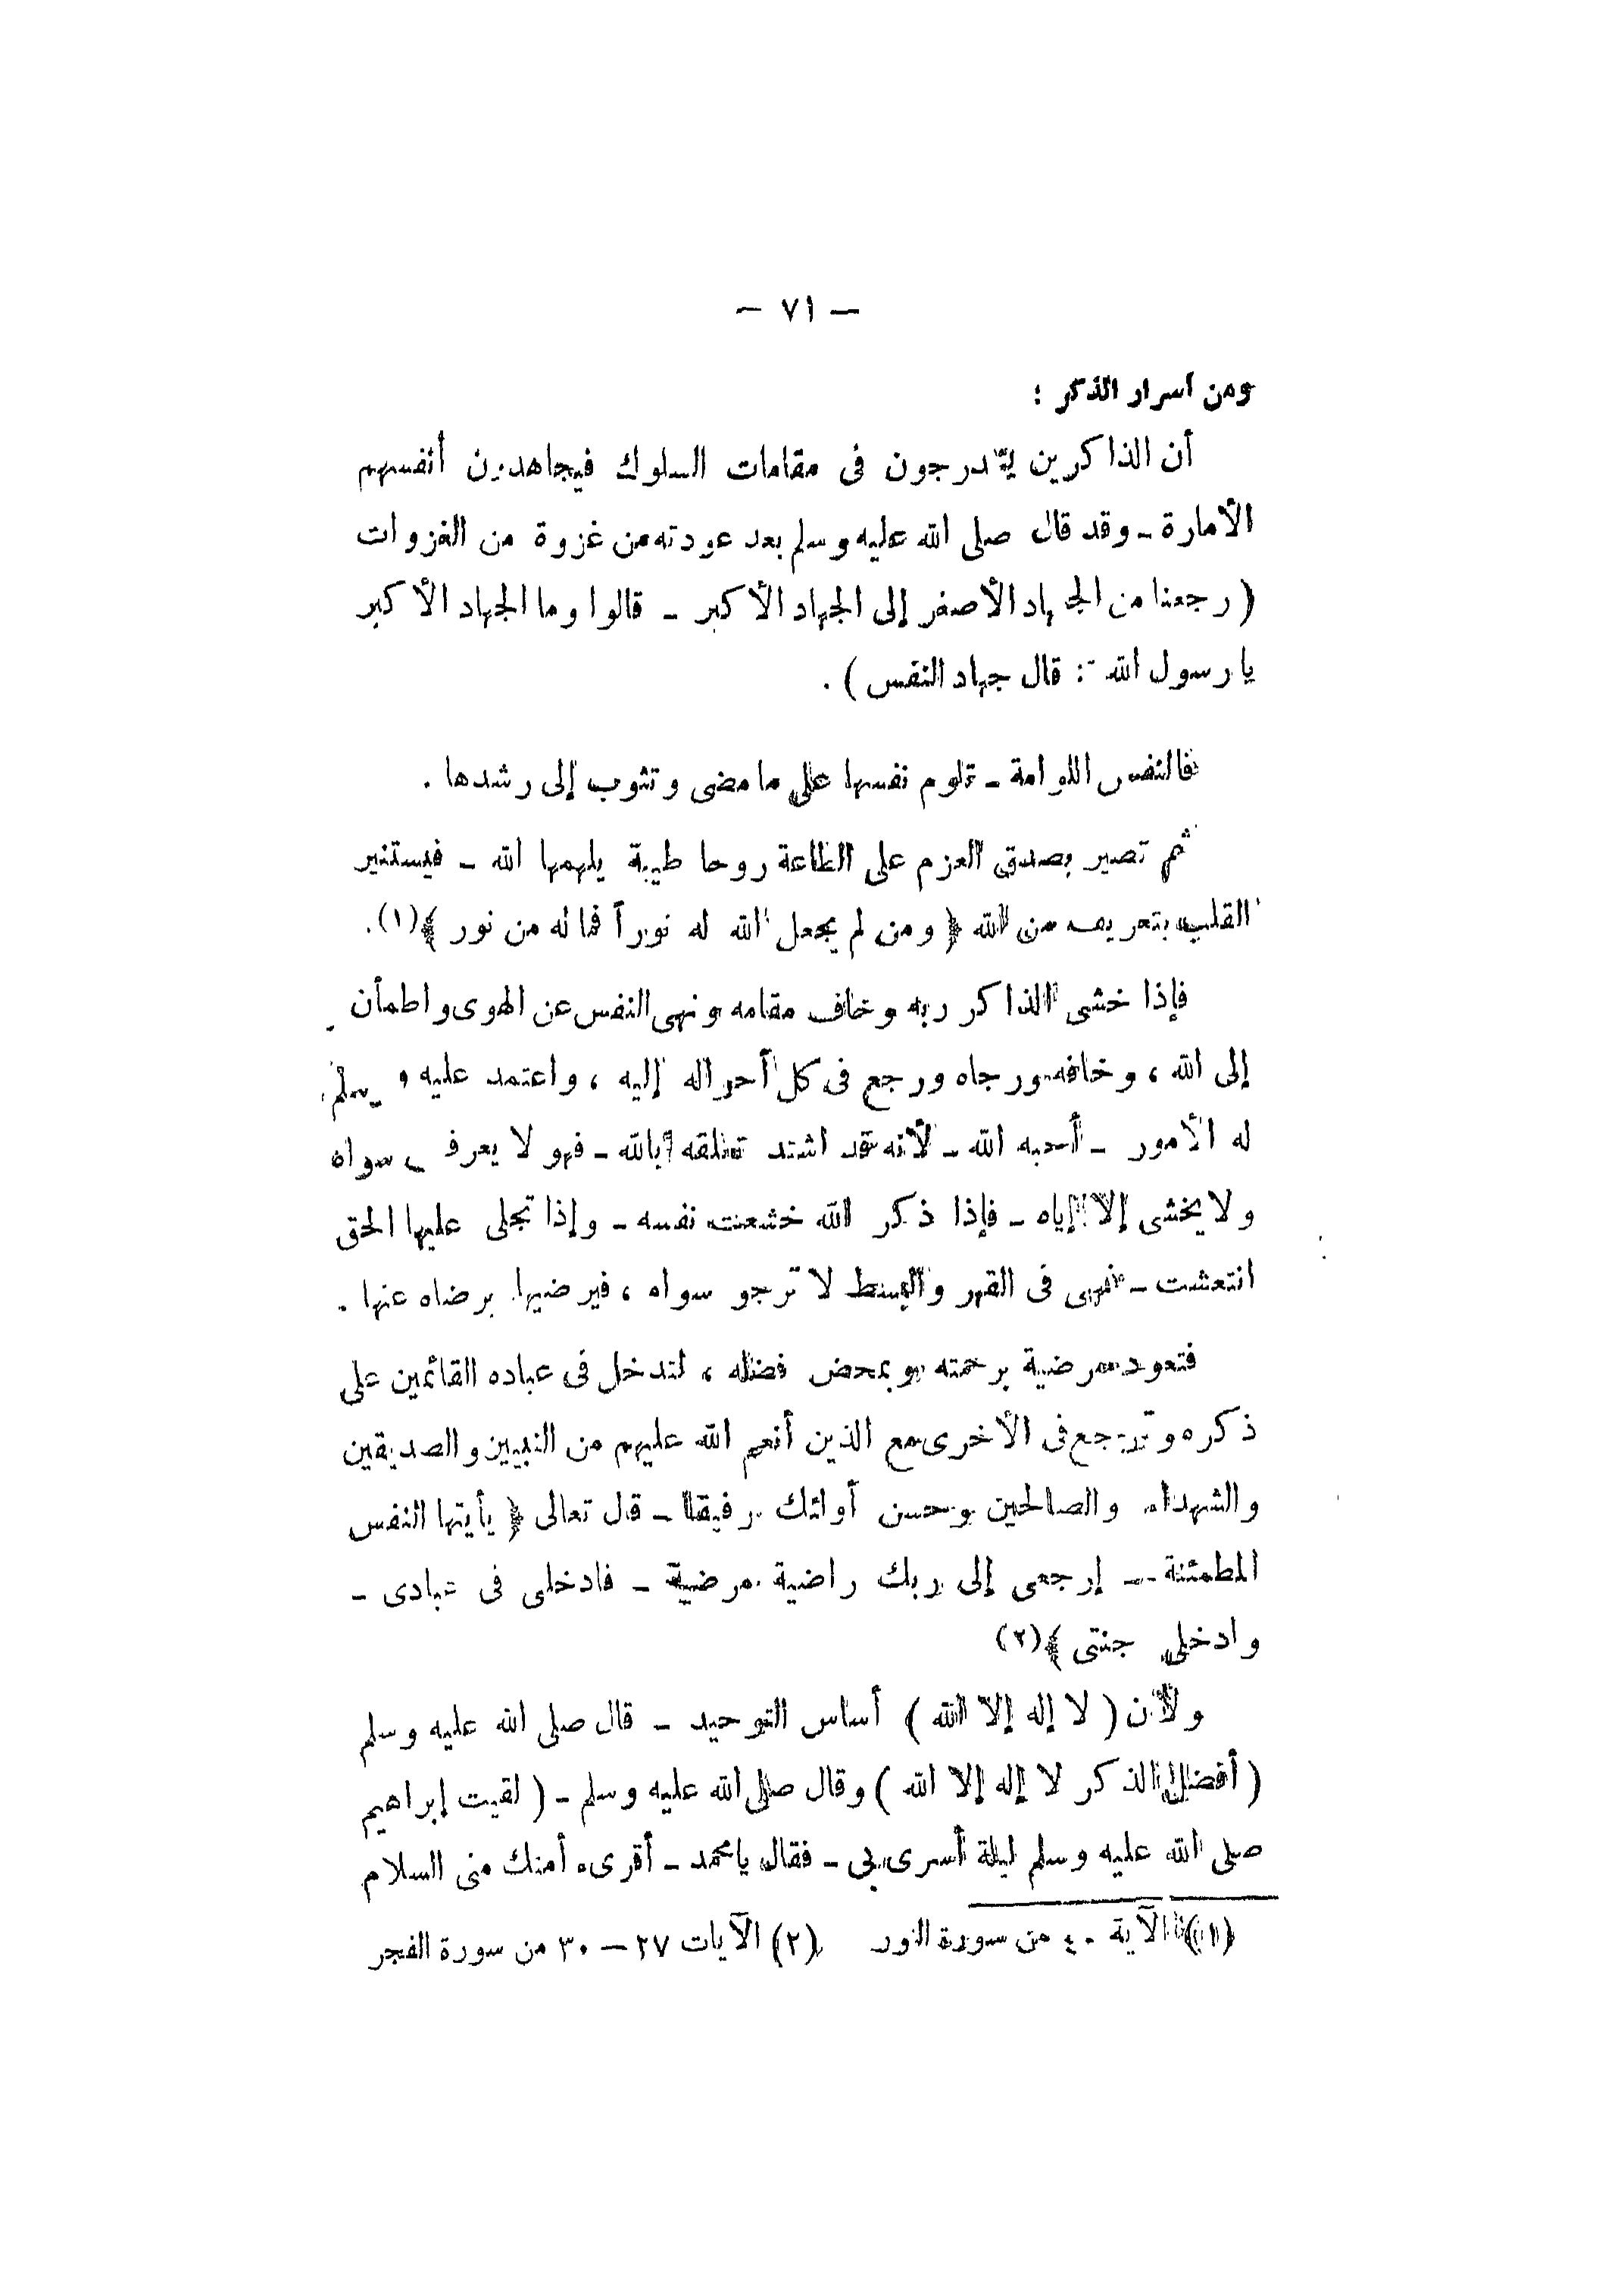 — ٧١ —
ومن أسرار الذكر :
أن الذاكرين يتدرجون فى مقامات السلوك فيجاهدون أنفسهم
الأمارة ـ وقد قال صلى الله عليه وسلم بعد عودته من غزوة من الغزوات
( رجعنا من الجهاد الأصغر إلى الجهاد الأكبر ـ قالوا وما الجهاد الأكبر
يا رسول الله : قال جهاد النفس ) .
فالنفس اللوامة ـ تلوم نفسها على ما مضى وتثوب إلى رشدها .
ثم تصير بصدق العزم على الطاعة روحا طيبة يلهمها الله ـ فيستنير
القلب بتعريف من الله ﴿ ومن لم يجعل الله له نوراً فما له من نور ﴾(١).
فإذا خشى الذاكر ربه وخاف مقامه ونهى النفس عن الهوى واطمأن
إلى الله ، وخافه ورجاه ورجع فى كل أحواله إليه ، واعتمد عليه وسلم
له الأمور ـ أحبه الله ـ لأنه قد اشتد تعلقه بالله ـ فهو لا يعرف سواه
ولا يخشى إلا إياه ـ فإذا ذكر الله خشعت نفسه ـ وإذا تجلى عليها الحق
انتعشت ـ فهى فى القهر والبسط لا ترجو سواه ، فيرضيها برضاه عنها .
فتعود مرضية برحمته وبمحض فضله ، لتدخل فى عباده القائمين على
ذكره وترجع فى الأخرى مع الذين أنعم الله عليهم من النبيين والصديقين
والشهداء والصالحين وحسن أولئك رفيقا ـ قال تعالى ﴿ يأيتها النفس
المطمئنة ـ إرجعى إلى ربك راضية مرضية ـ فادخلى فى عبادى ـ
وادخلى جنتى ﴾(٢)
ولأن ( لا إله إلا الله ) أساس التوحيد ـ قال صلى الله عليه وسلم
( أفضل الذكر لا إله إلا الله ) وقال صلى الله عليه وسلم ـ ( لقيت إبراهيم
صلى الله عليه وسلم ليلة أسرى بى ـ فقال يا محمد ـ أقرىء أمتك منى السلام
(١) الآية ٤٠ من سورة النور (٢) الآيات ٢٧ — ٣٠ من سورة الفجر